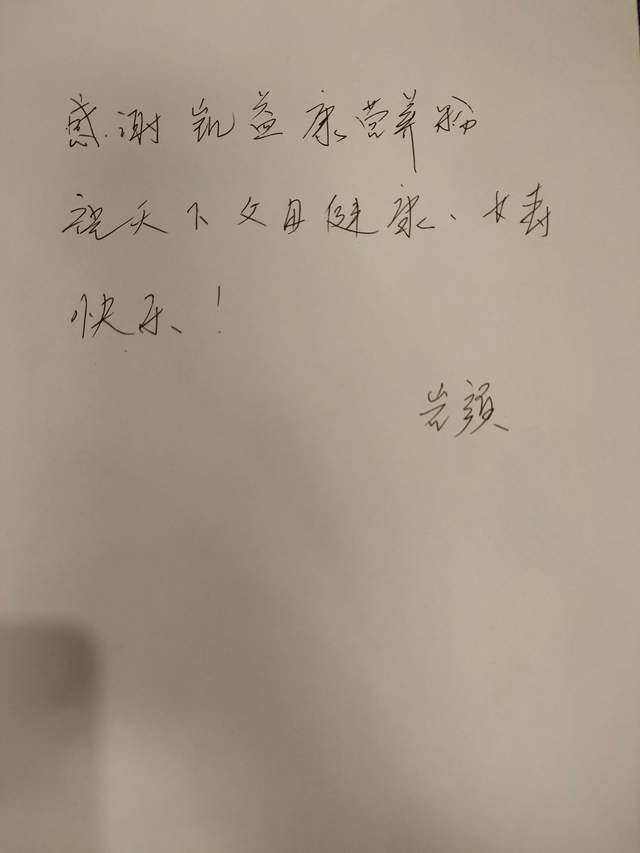 感谢凯益康营养粉
祝天下父母健康、长寿
快乐!
岩颜